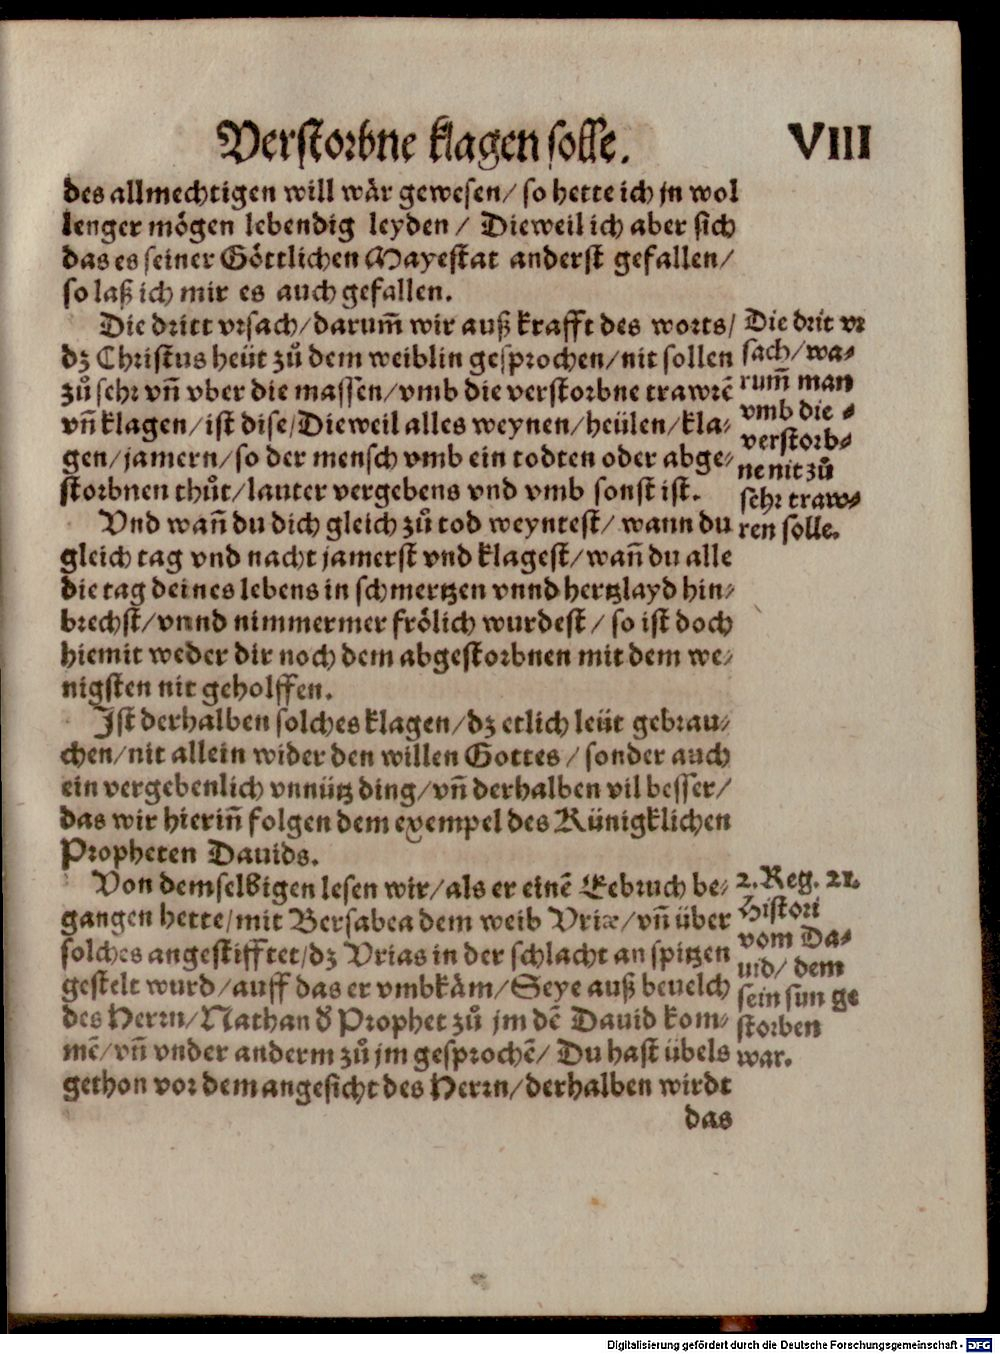 Verstorbne klagen solle. VIII
des allmechtigen will wår gewesen/ so hette ich jn wol
lenger mögen lebendig leyden / Dieweil ich aber sich
das es seiner Göttlichen Mayestat anderst gefallen/
so laß ich mir es auch gefallen.
Die dritt vrsach/darum̃ wir auß krafft des worts/
dz Christus heüt zů dem weiblin gesprochen/nit sollen
zů sehr vñ vber die massen/vmb die verstorbne trawrē
vñ klagen/ist dise/Dieweil alles weynen/heülen/kla-
gen/jamern/so der mensch vmb ein todten oder abge-
storbnen thůt/lauter vergebens vnd vmb sonst ist.
Die drit vr
sach/wa-
rum̃ man
vmb die -
verstorb-
ne nit zů
sehr traw-
ren solle.
Vnd wañ du dich gleich zů tod weyntest/ wann du
gleich tag vnd nacht jamerst vnd klagest/wañ du alle
die tag deines lebens in schmertzen vnnd hertzlayd hin-
brechst/vnnd nimmermer frölich wurdest / so ist doch
hiemit weder dir noch dem abgestorbnen mit dem we-
nigsten nit geholffen.
Ist derhalben solches klagen/dz etlich leüt gebrau-
chen/nit allein wider den willen Gottes / sonder auch
ein vergebenlich vnnütz ding/vñ derhalben vil besser/
das wir hieriñ folgen dem exempel des Künigklichen
Propheten Dauids.
Von demselbigen lesen wir/als er einē Eebruch be-
gangen hette/mit Bersabea dem weib Vriæ/vñ über
solches angestifftet/dz Vrias in der schlacht an spitzen
gestelt wurd/auff das er vmbkåm/Seye auß beuelch
des Herrn/Nathan d̕ Prophet zů jm dē Dauid kom-
mē/vñ vnder anderm zů jm gesprochē/ Du hast übels
gethon vor dem angesicht des Herrn/derhalben wirdt
das
2.Reg. 21.
Histori
vom Da-
uid/ dem
sein sun ge
storben
war.
Digitalisierung gefördert durch die Deutsche Forschungsgemeinschaft - DFG